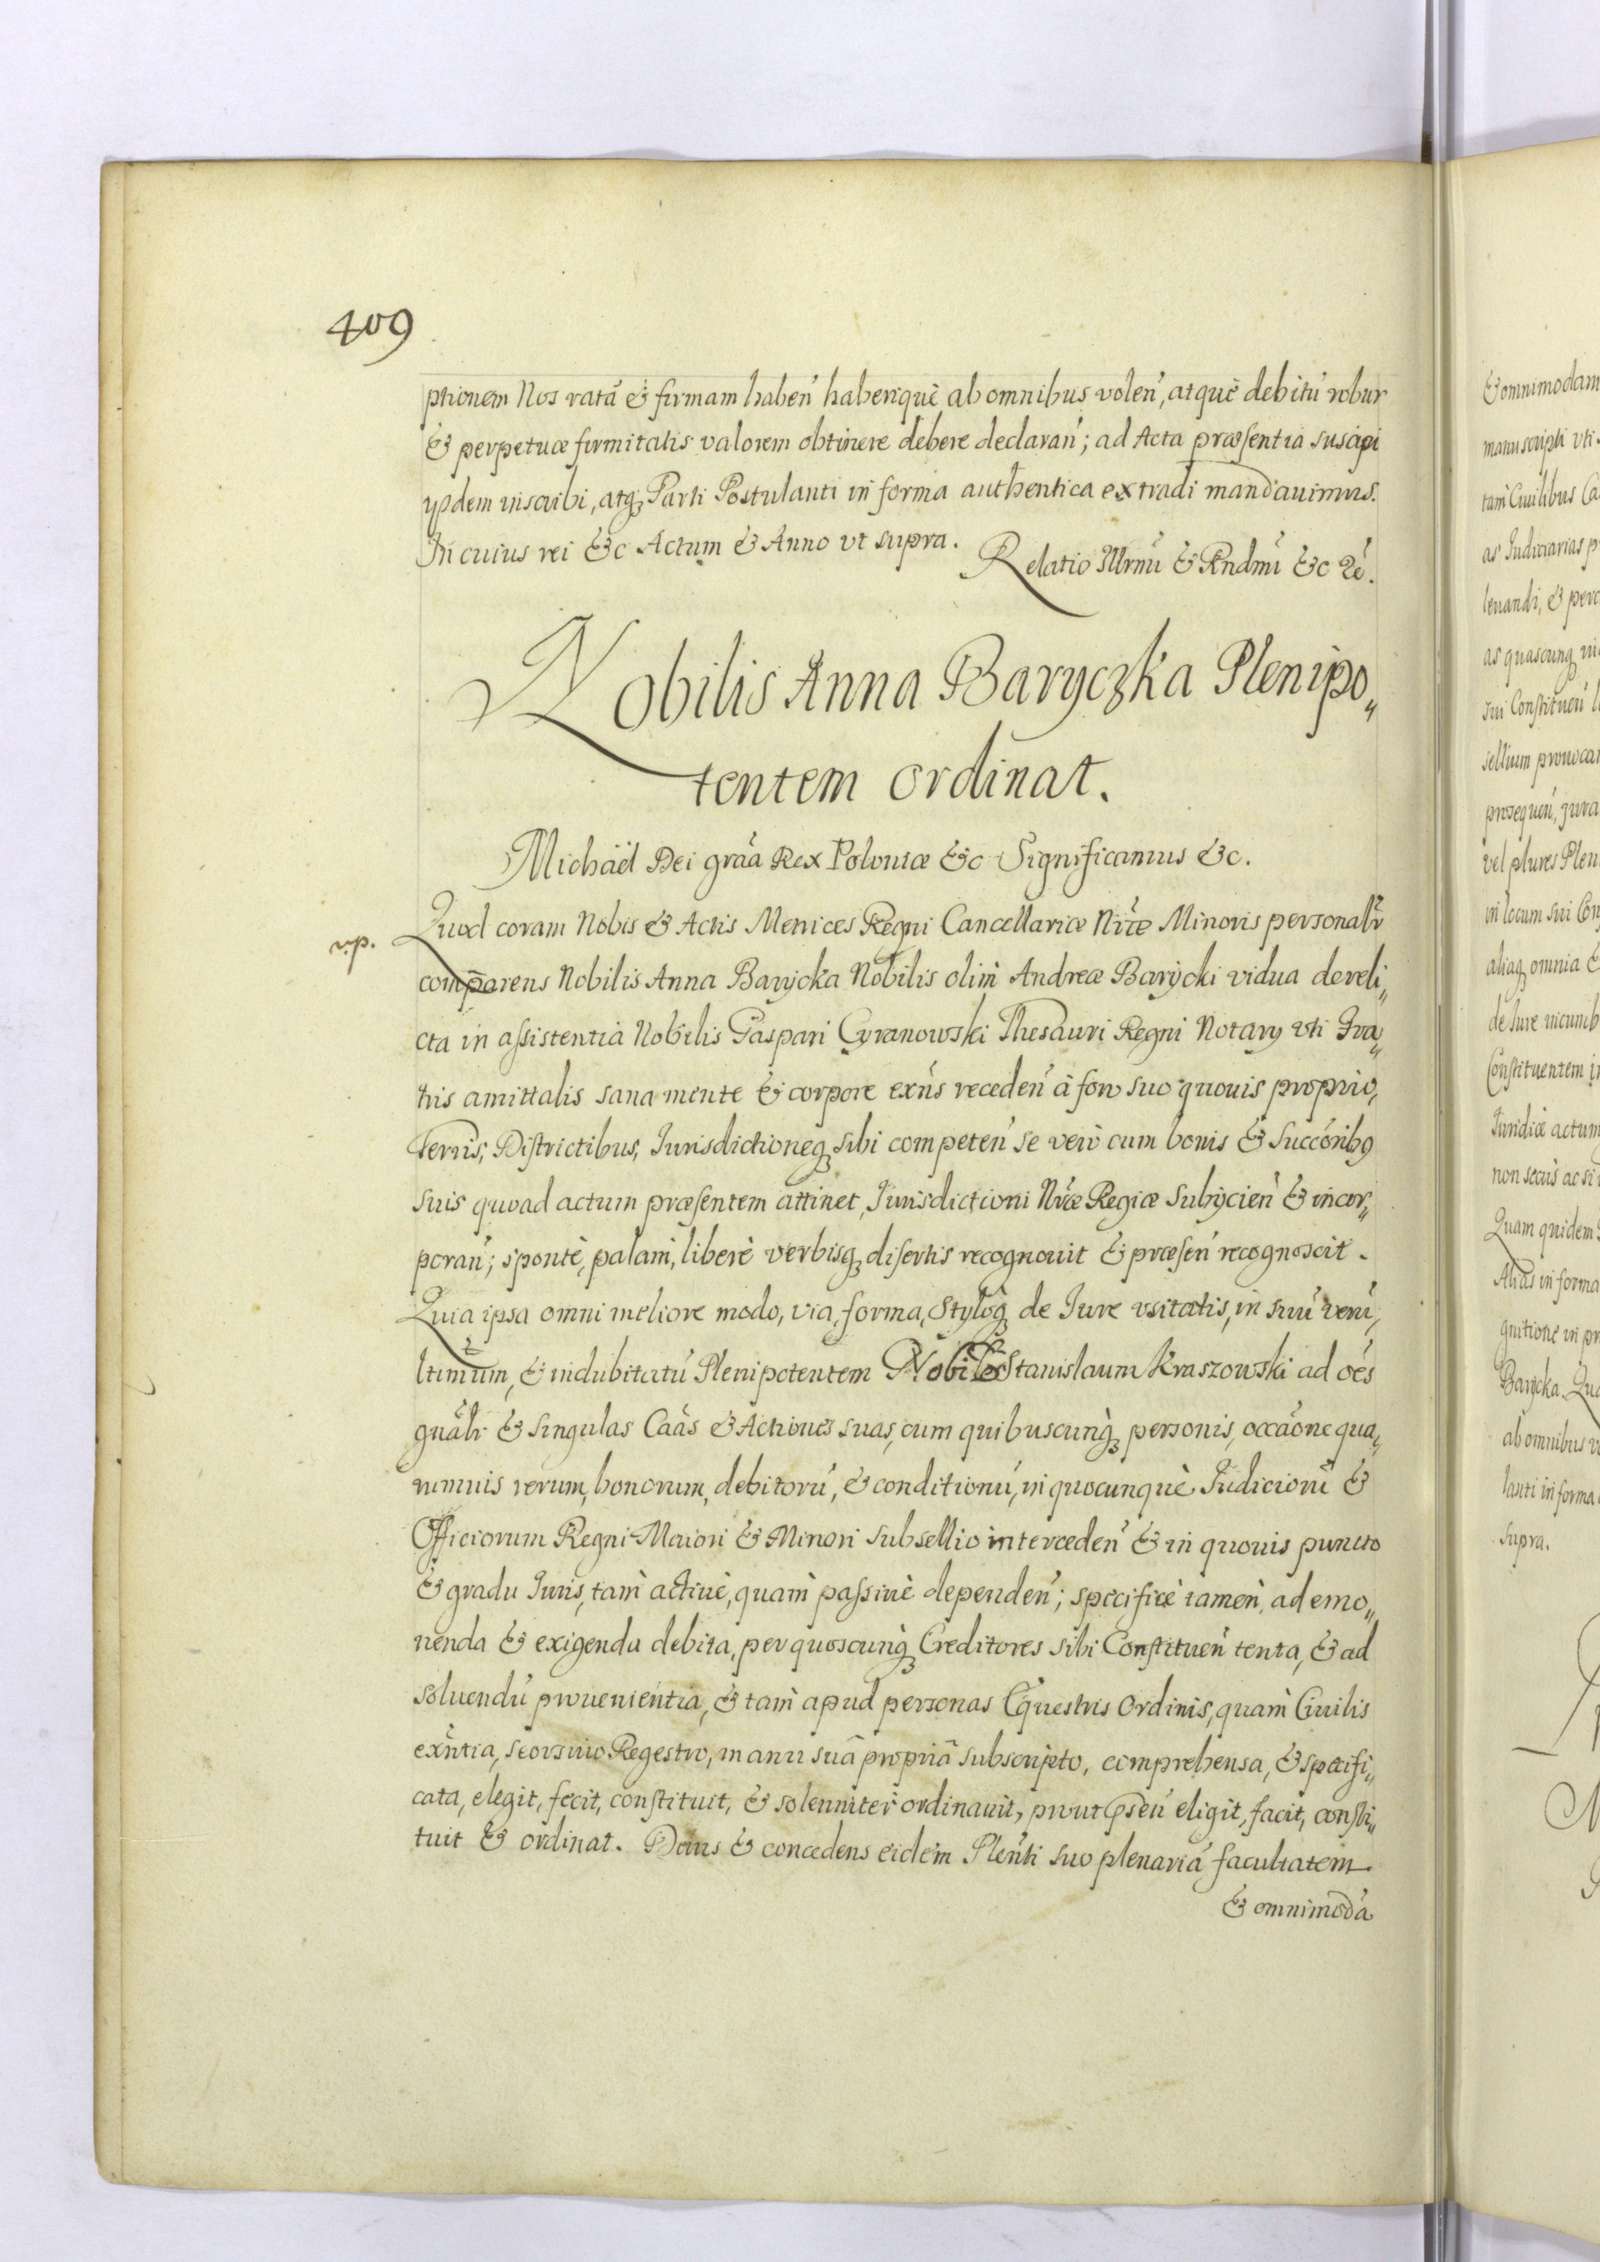 409
ptionem Nos ratã & firmam habeń haberiquè ab omnibus voleń, atquè debitú robur
& perpetuæ firmitatis valorem obtinere debere declarań; ad Acta præsentia suscipi
ijsdem inscribi, atq₃ Parti Postulanti in forma authentica extradi mandauimus.
In cuius rei &c Actum & Anno vt supra.
Relatio Illrmi & Rndmi &c
Nobilis Anna Baryczka Plenipo„
tentem ordinat.
Michäel Dei gráa Rex Poloniæ &c Significamus &c.
v.p.
Quod coram Nobis & Actis Metrices Regni Cancellariæ Nræ Minoris personalr
comparens Nobilis Anna Barycka Nobilis olim Andreæ Barycki vidua dereli„
cta in assistentia Nobilis Gaspari Cyranowski Thesauri Regni Notarÿ vti Fra„
tris amittalis sana mente & corpore exńs recedeń à foro suo quouis proprio,
Terris, Districtibus, Iurisdictioneq₃ sibi competeń se verò cum bonis & Succóribg
suis quoad actum præsentem attinet, Iurisdictioni Nræ Regiæ Subÿcień & incor„
porań; spontè, palam, liberè verbisq₃ disertis recognouit & præseń recognoscit.
Quia ipsa omni meliore modo, via, forma, Stylóq₃ de Iure vsitatis, in suú verú,
ltimum, & indubitatú Plenipotentem Nobilem Stanislaum Kraszowski ad oẽs
gnãlr & Singulas Caãs & Actiones suas, cum quibuscunq₃ personis, occãone qua„
rumuis rerum, bonorum, debitorú, & conditionú, in quocunquè Iudiciorú &
Officiorum Regni Maiori & Minori subsellio intercedeń & in quouis puncto
& gradu Iuris, tam actiuè, quam passiuè dependeń; specificè tamen, ad emo„
nenda & exigenda debita, per quoscunq₃ Creditores sibi Constitueń tenta, & ad
soluendú prouenientia, & tam apud personas Equestris Ordinis, quam Ciuilis
exńtia, seorsiuo Regestro, manu suã propriã subscripto, comprehensa, & specifi„
cata, elegit, fecit, constituit, & solenniter ordinauit, prout pseń eligit, facit, consti„
tuit & ordinat. Dans & concedens eidem Pleńti suo plenariã facultatem
& omnimodã
& omnimodam
manuscripti vti
tam Ciuilibus Ca
as Iudiciarias p
leuandi, & perc
as quascunq₃
sui Constitueń
sellium prouocan
prosequeń, iura
vel plures Plen
in locum sui Con
aliaq₃ omnia &
de Iure incumb
Constituentem
Iuridicè actum
non secus ac si
Quam quidem
Alias in forma
gnitionè in pr
Barycka. Qua
ab omnibus
lanti in forma
supra.